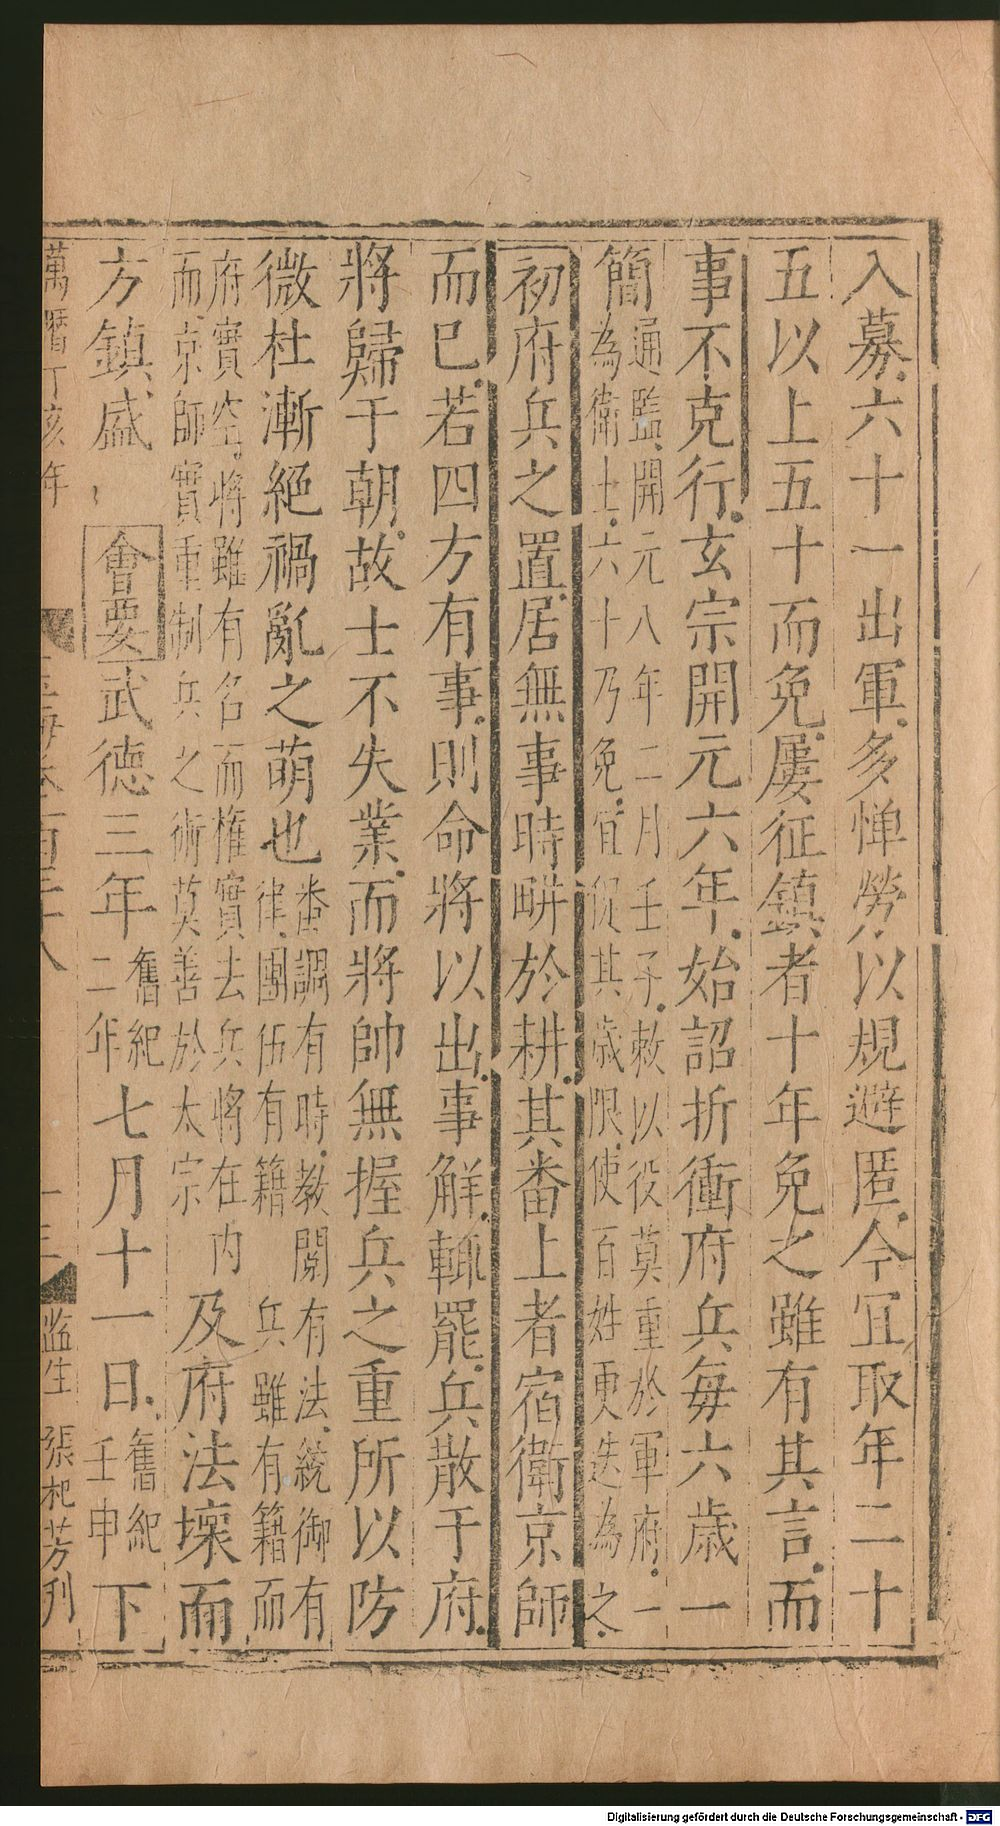 入募六十一出軍多憚勞以規避匿今宜取年二十
五以上五十而免屢征鎮者十年免之雖有其言而
事不克行玄宗開元六年始詔折衝府兵每六歲一
簡
通監開元八年二月壬子敕以役莫重於軍府一
為衛士六十乃免宜促其歲限使百姓更迭為之
初府兵之置居無事時畊於耕其番上者宿衛京師
而已若四方有事則命將以出事解輒罷兵散于府
將歸于朝故士不失業而將帥無握兵之重所以防
微杜漸絕禍亂之萌也
畨調有時教閱有法統御有
律團伍有籍 兵雖有籍而
府實空將雖有名而權實去兵將在內
而京師實重制兵之術莫善於太宗
及府法壞而
方鎮盛 會要武德三年
舊紀
二年
七月十一日
舊紀
壬申
下
萬曆丁亥年
玉海卷一百三十八
十三
監生 張杞芳刊
Digitalisierung gefördert durch die Deutsche Forschungsgemeinschaft - DFG